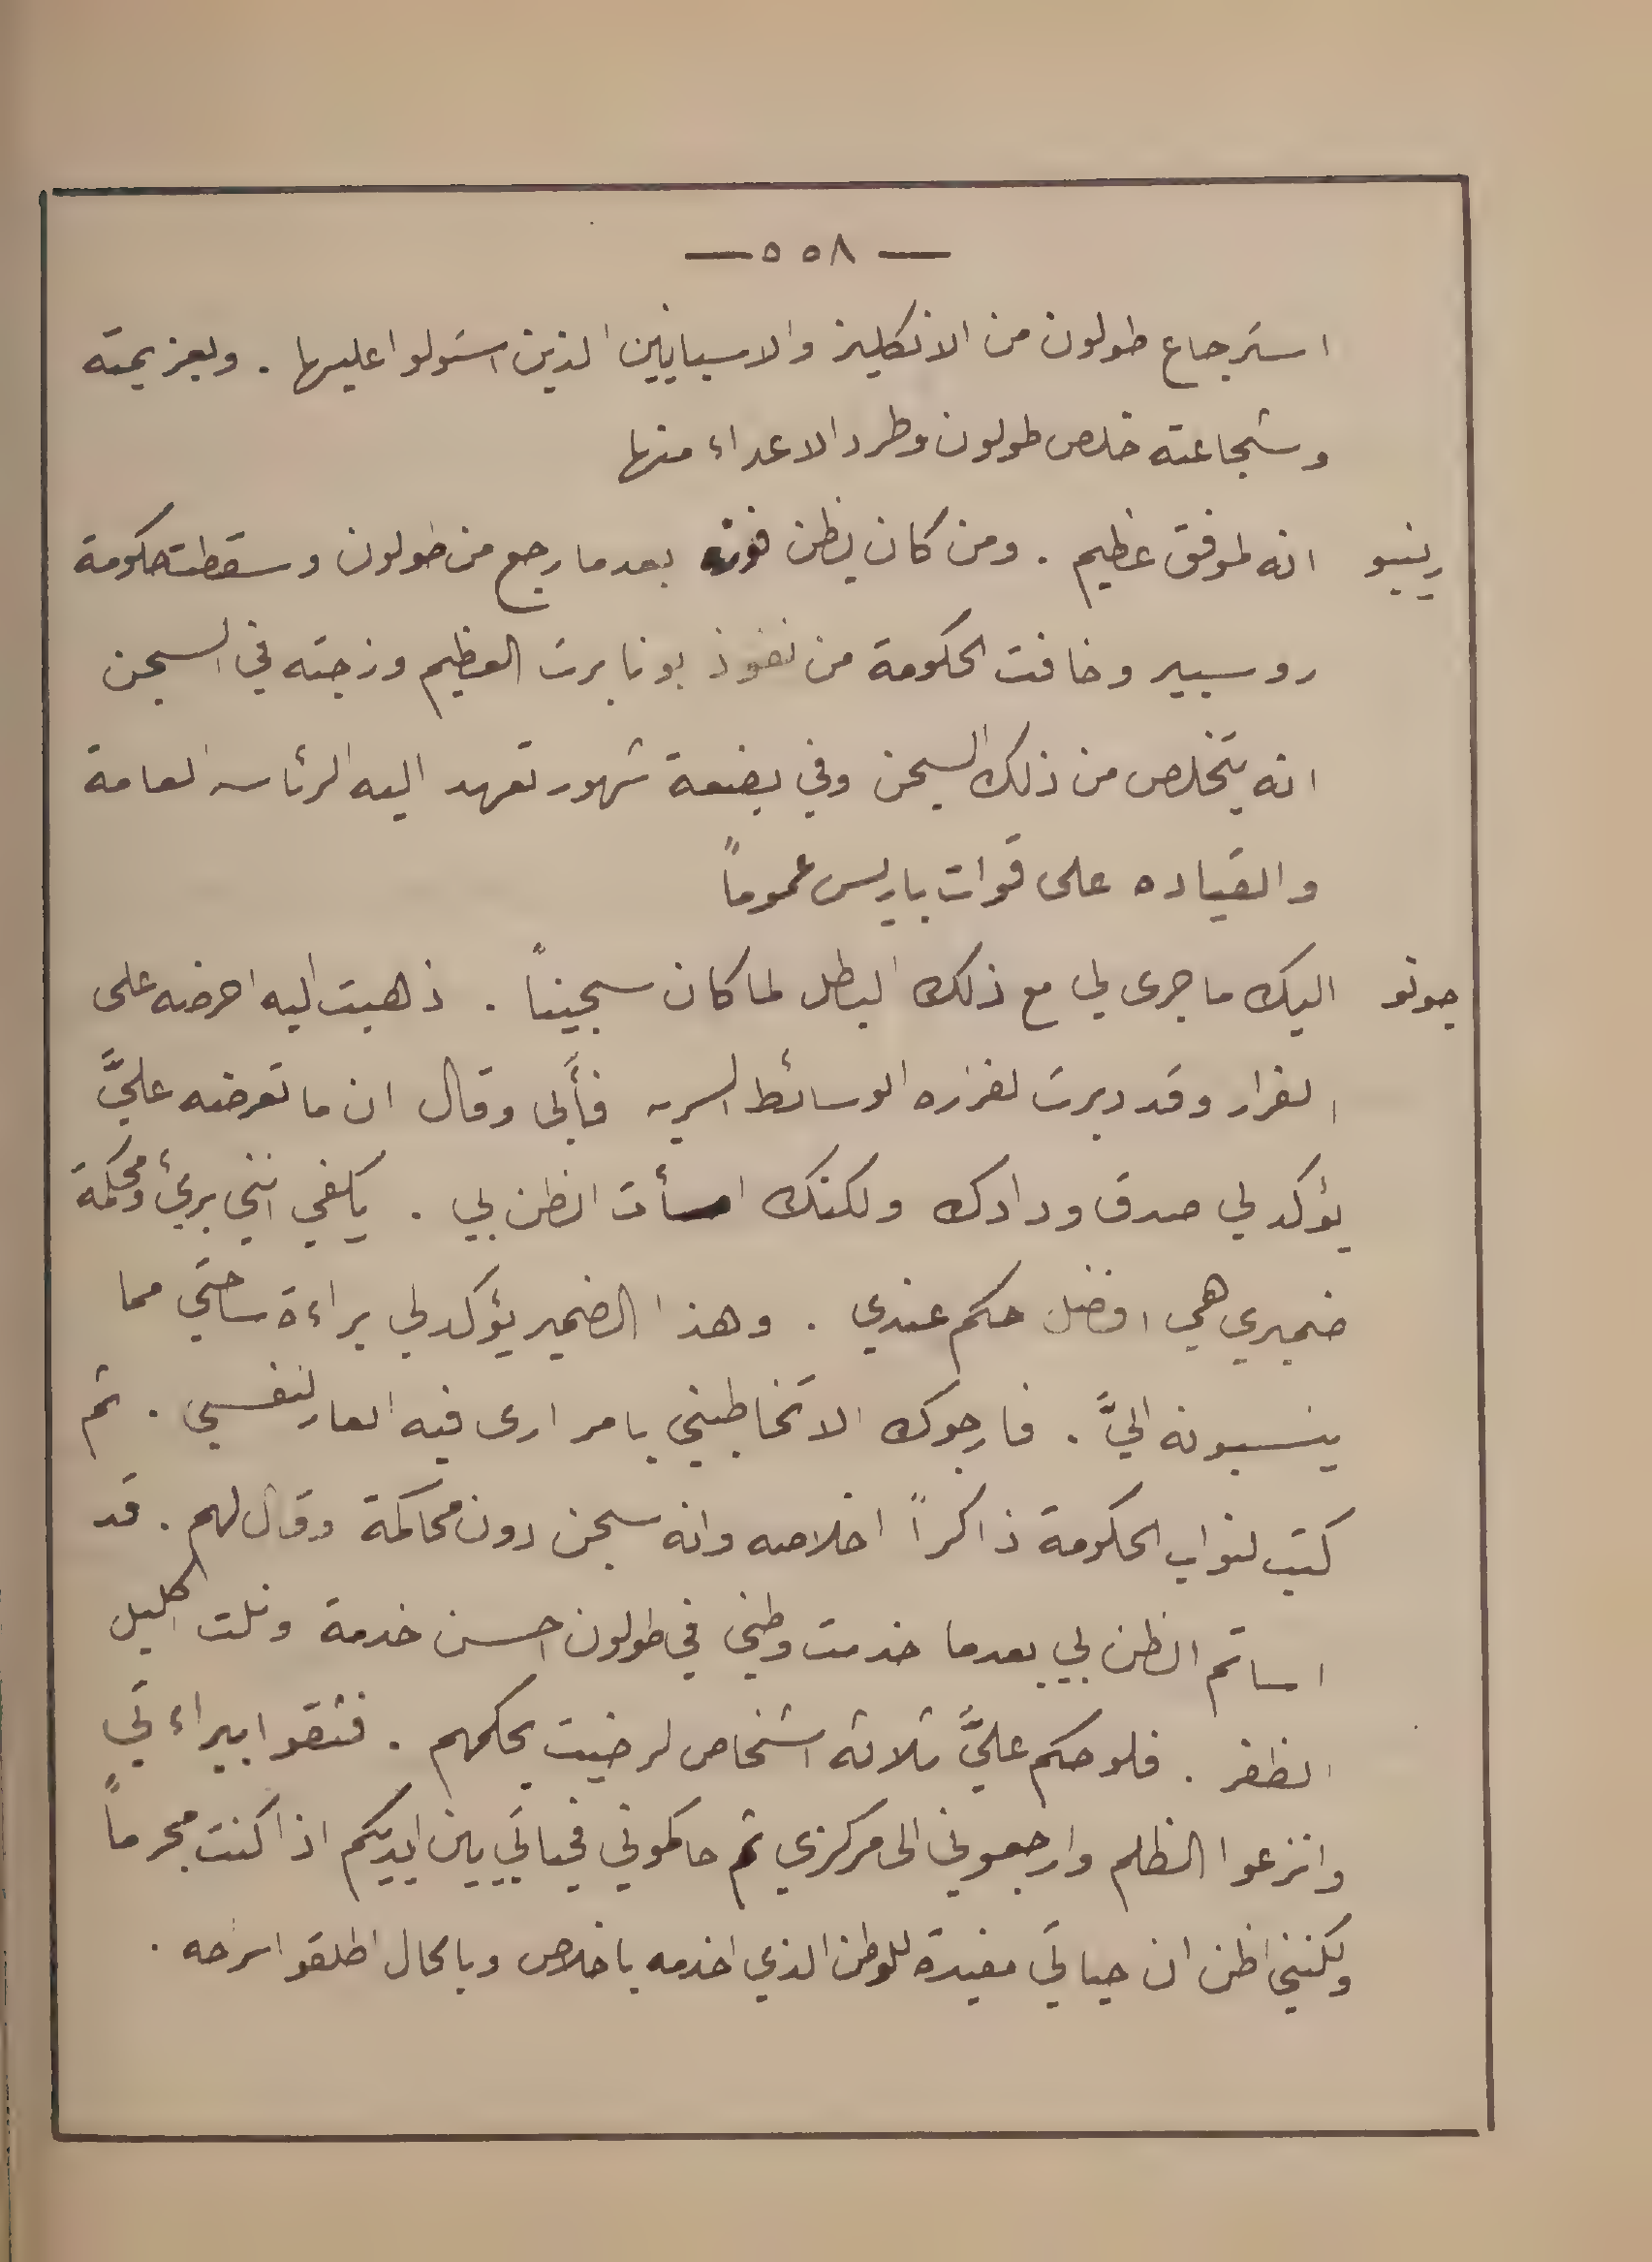 — ٥٥٨ —
استرجاع طولون من الانكليز والاسبانيين الذين استولوا عليها . وبعزيمته
وشجاعته خلص طولون وطرد الاعداء منها
رينيو انه لموفق عظيم . ومن كان يظن فوزه بعدما رجع من طولون وسقطت حكومة
روسبير وخافت الحكومة من نفوذ بونابرت العظيم وزجته في السجن
انه يتخلص من ذلك السجن وفي بضعة شهور تعهد اليه الرئاسه العامة
والقياده على قوات باريس عموماً
جونو اليك ما جرى لي مع ذلك البطل لما كان سجيناً . ذهبت اليه احرضه على
الفرار وقد دبرت لفراره الوسائط السريه فأبى وقال ان ما تعرضه عليَّ
يؤكد لي صدق ودادك ولكنك اسأت الظن بي . يكفي انني برئ ومحكمة
ضميري هي افضل حكم عندي . وهذا الضمير يؤكد لي براءة ساحتي مما
ينسبونه اليَّ . فارجوك الا تخاطبني بامر ارى فيه العار لنفسي . ثم
كتب لنواب الحكومة ذاكراً اخلاصه وانه سجن دون محاكمة وقال لهم . قد
اساتم الظن بي بعدما خدمت وطني في طولون احسن خدمة ونلت اكليل
الظفر . فلو حكم عليَّ ثلاثة اشخاص لرضيت بحكمهم . فثقوا ببراءتي
وانزعوا الظلم وارجعوني الى مركزي ثم حاكموني فحياتي بين ايديكم اذا كنت مجرماً
ولكنني اظن ان حياتي مفيدة للوطن الذي اخدمه باخلاص وبالحال اطلقوا سرحه .